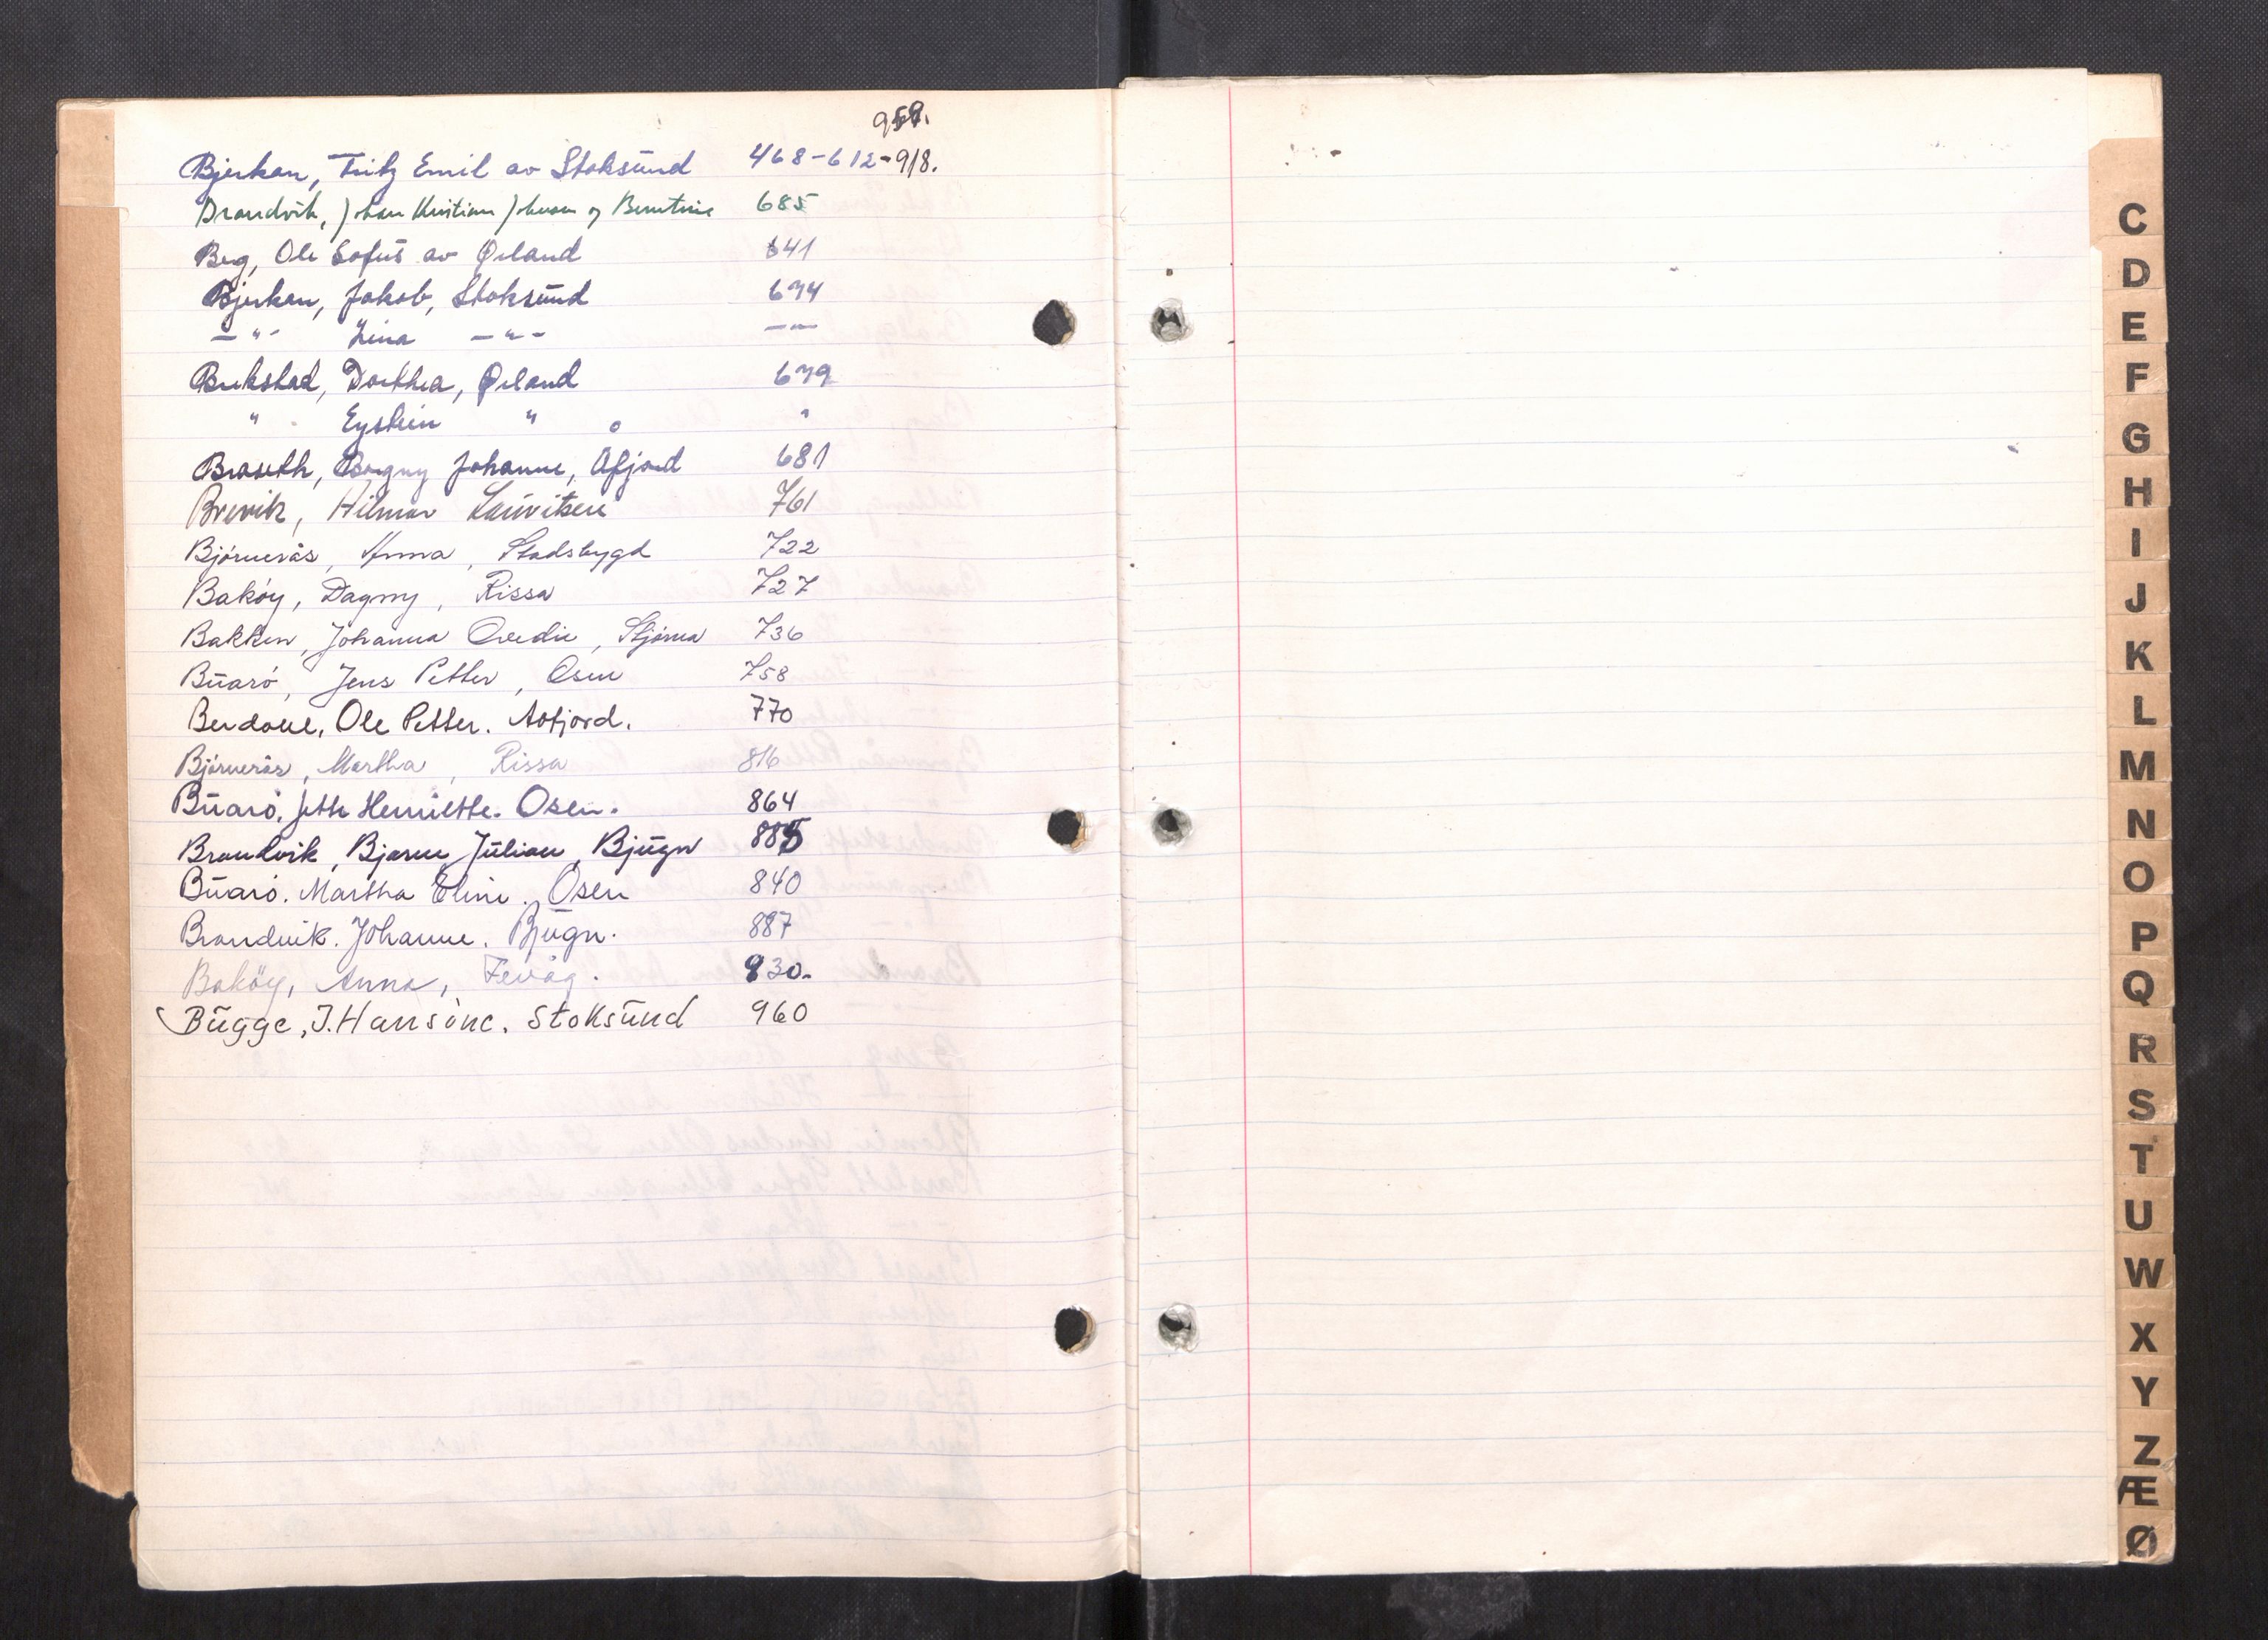 959.
Bjerkan, Fritz Emil av Stoksund 468-612-918.
Brandvik, Johan Kristian Johnsen og Berntine 685
Berg, Ole Sofus av Ørland 641
Bjerkan, Jakob, Stoksund 674
—"— Lina —"— —"—
Brekstad, Dorthea, Ørland 679
" Eystein " "
Braseth, Borgny Johanne, Åfjord 681
Brevik, Hilmar Lauritsen 761
Björnerås, Anna, Stadsbygd 722
Baköy, Dagny, Rissa 727
Bakken, Johanna Ovedie, Stjörna 736
Buarö, Jens Petter, Osen 758
Berdahl, Ole Petter. Aafjord. 770
Björnerås, Martha, Rissa 816
Buarö, Jette Henriette. Osen. 864
Brandvik, Bjarne Julian, Bjugn 885
Buarö. Martha Eline. Osen 840
Brandvik. Johanne. Bjugn. 887
Baköy, Anna, Fevåg. 930.
Bugge, J. Hansine. Stoksund 960
C
D
E
F
G
H
I
J
K
L
M
N
O
P
Q
R
S
T
U
W
X
Y
Z
Æ
Ø